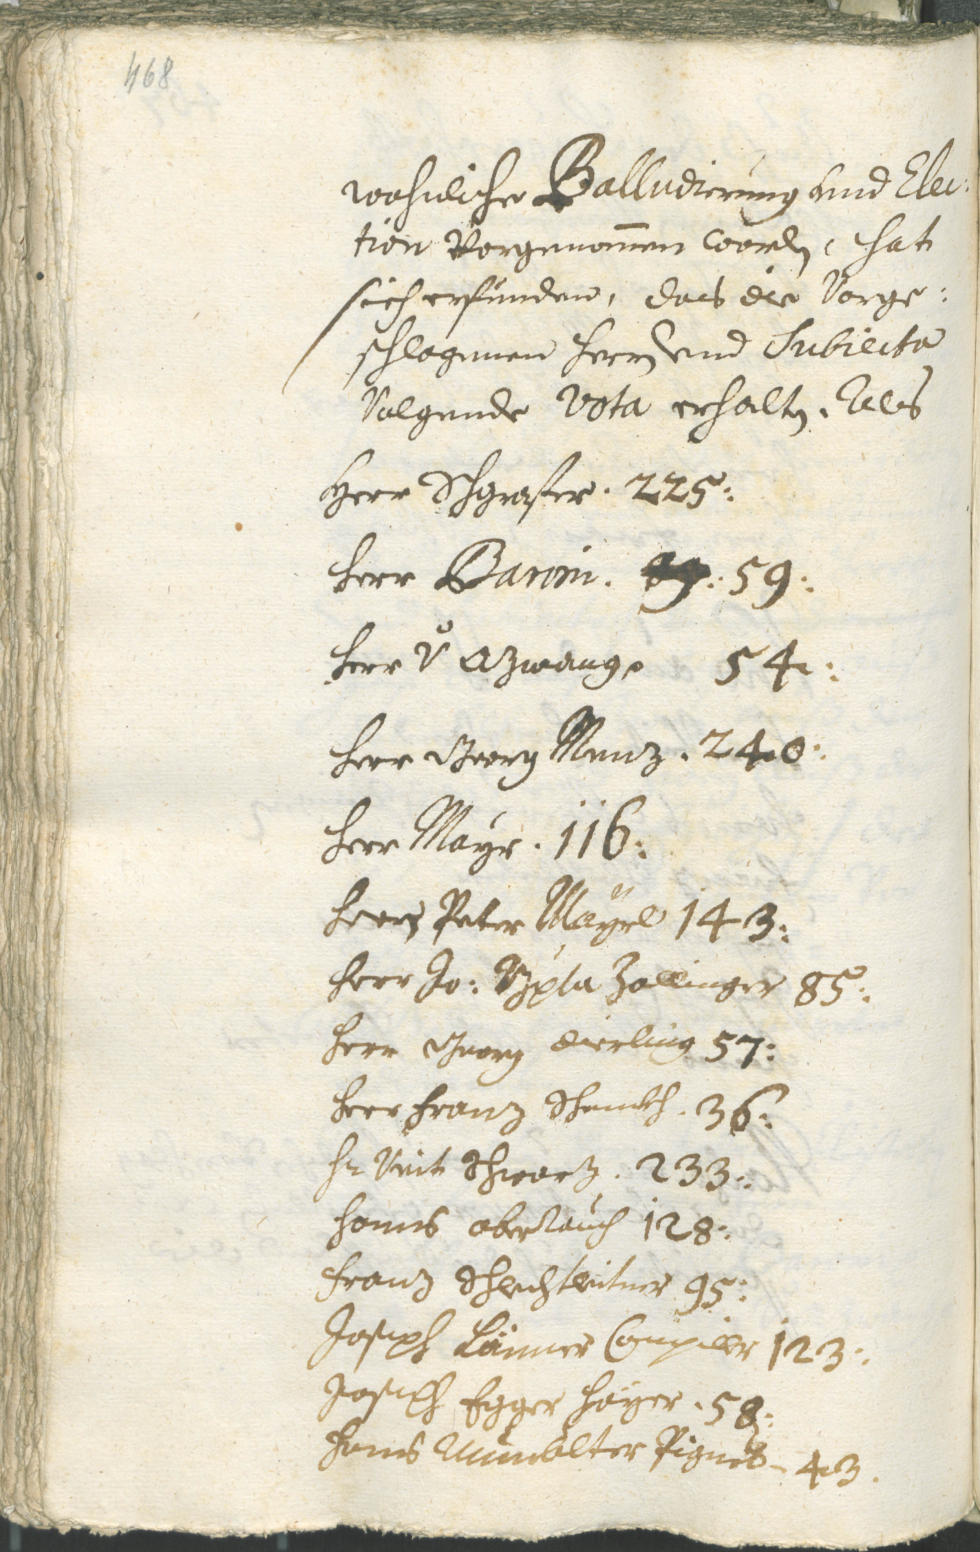 468
wohnliche Balludierung und Elec:
tion Vorgenommen word, hat
sich erfunden, das die Vorge:
schlagenen Herrn und Subiecta
Volgende Vota erhaltn. Als
Herr Schgraffer. 225:
Herr Baroni. 59:
Herr V Azwang 54:
Herr Georg Menz. 240:
Herr Mayr. 116:
Herr Peter Mayrl 143:
Herr Jo: Bpta Zallinger 85:
Herr Georg Dierling 57:
Herr Franz Schenkh. 36:
Hr Veit Schwarz. 233:
Hanns oberRauch 128:
Franz Schlechtleitner 95:
Joseph Länner 123:
Joseph Egger 58:
Hanns 43.